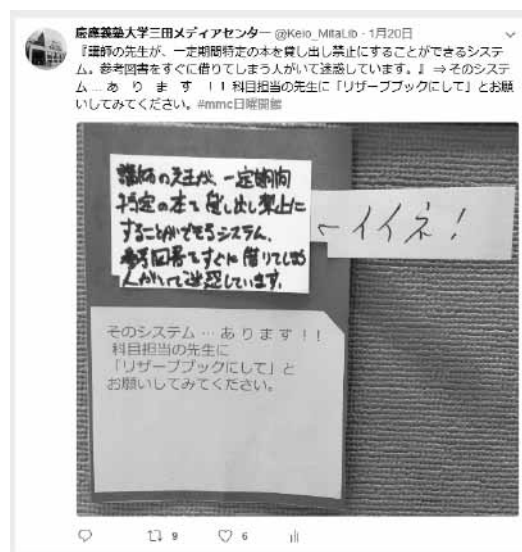 慶應義塾大学三田メディアセンター @Keio_MitaLib · 1月20日
『講師の先生が、一定期間特定の本を貸し出し禁止にすることができるシステ
ム。参考図書をすぐに借りてしまう人がいて迷惑しています。』 ⇒そのシステ
ム…あ り ま す ！！科目担当の先生に「リザーブブックにして」とお願
いしてみてください。#mmc日曜開館
講師の先生が、一定期間
特定の本を貸し出し禁止に
することができるシステム。
参考図書をすぐに借りてしまう
人がいて迷惑しています。
←イイネ！
そのシステム…あります！！
科目担当の先生に
「リザーブブックにして」と
お願いしてみてください。
9
6